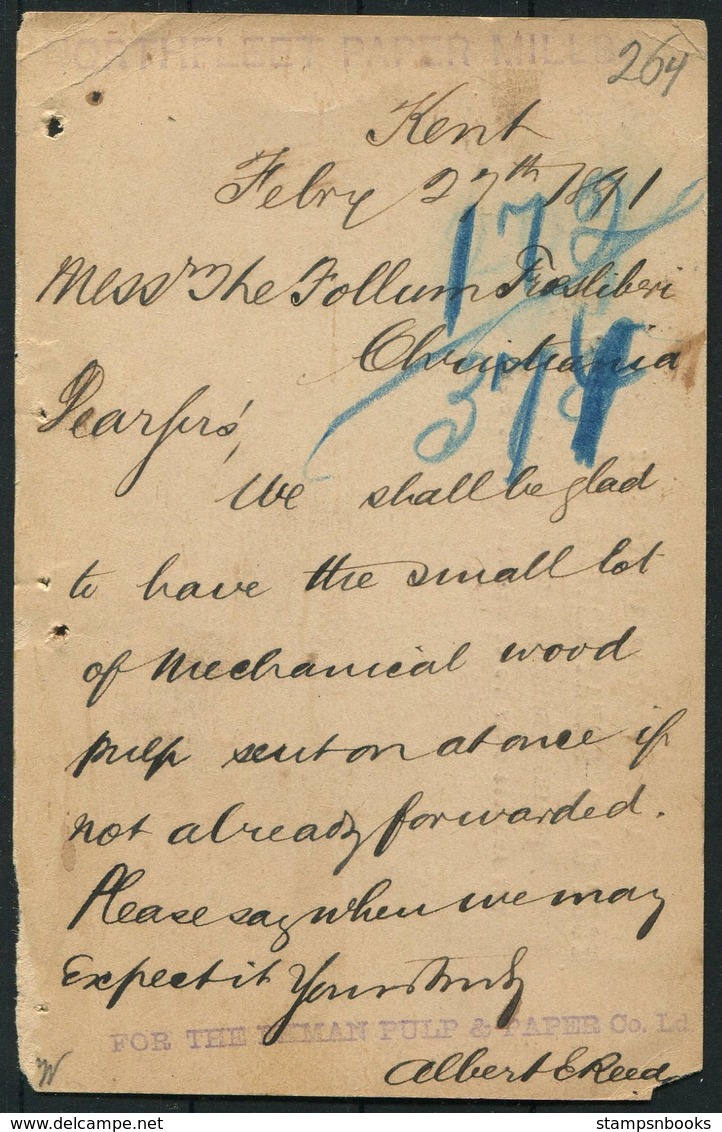 NORTHFLEET PAPER MILLS
264
Kent
Febry 27th 1891
172
Messrs The Follum Træsliberi
Christiania
Dear Sirs,
We shall be glad
to have the small lot
of Mechanical wood
pulp sent on at once if
not already forwarded.
Please say when we may
Expect it Yours truly
FOR THE PULP & PAPER Co. Ld
Albert E Reed
stampsnbooks